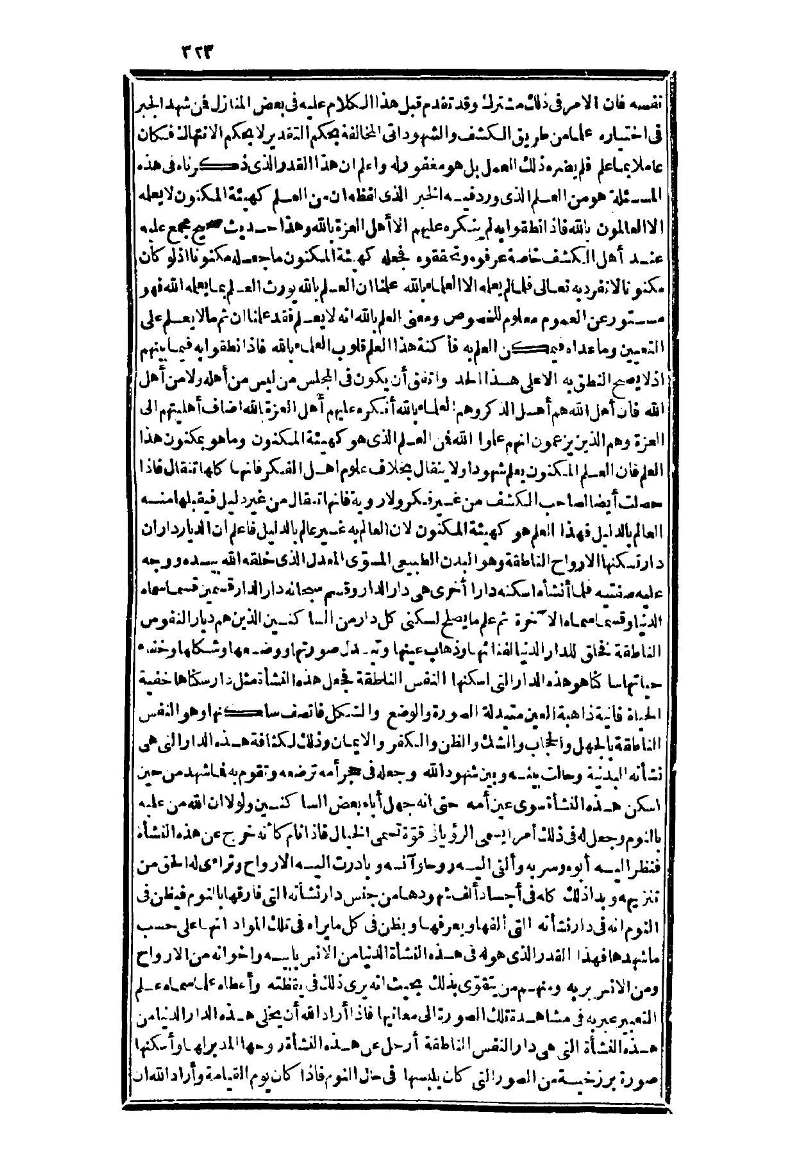 ٣٢٣
نفسه فان الامر فى ذلك مشترك وقد تقدم قبل هذا الكلام عليه فى بعض المنازل فمن شهد الجبر
فى اختياره علما من طريق الكشف والشهود اتى المخالفة بحكم التقدير لا بحكم الانتهاك فكان
عاملا بما علم فلم يضره ذلك العمل بل هو مغفور له واعلم ان هذا القدر الذى ذكرناه فى هذه
المسئلة هو من العلم الذى ورد فيه الخبر الذى لفظه ان من العلم كهيئة المكنون لا يعلمه
الا العالمون بالله فاذا نطقوا به لم ينكره عليهم الا أهل الغرة بالله وهذا حديث صحيح مجمع عليه
عند أهل الكشف خاصة عرفوه وتحققوه فجعله كهيئة المكنون ما جعله مكنونا اذ لو كان
مكنونا لانفرد به تعالى فلما لم يعلمه الا العلماء بالله علمنا ان العلم بالله يورث العلم بما يعلمه الله فهو
مستور عن العموم معلوم للخصوص ومعنى العلم بالله انه لا يعلم فقد علمنا ان ثم ما لا يعلم على
التعيين وما عداه فيمكن العلم به فأكنة هذا العلم قلوب العلماء بالله فاذا نطقوا به فيما بينهم
اذ لا يصح النطق به الا على هذا الحد واتفق أن يكون فى المجلس من ليس من أهله ولا من أهل
الله فان أهل الله هم أهل الذكر وهم العلماء بالله أنكره عليهم أهل العزة بالله اضاف أهليتهم الى
العزة وهم الذين يزعمون انهم علموا الله فمن العلم الذى هو كهيئة المكنون وما هو بمكنون هذا
العلم فان العلم المكنون يعلم شهودا ولا ينقال بخلاف علوم اهل الفكر فانها كلها تنقال فاذا
حصلت أيضا لصاحب الكشف من غير فكر ولا روية فانها تنقال من غير دليل فيقبلها منه
العالم بالدليل فهذا العلم هو كهيئة المكنون لان العالم به غير عالم بالدليل فاعلم ان الدار داران
دار تسكنها الارواح الناطقة وهو البدن الطبيعى المسوى المعدل الذى خلقه الله بيده ووجه
عليه صفتيه فلما أنشأه اسكنه دارا أخرى هى دار الدار وقسم سبحانه دار الدار قسمين قسما سماه
الدنيا وقسما سماه الآخرة ثم علم ما يصلح لسكنى كل دار من الساكنين الذين هم ديار النفوس
الناطقة فخلق للدار الدنيا لفنائها وذهاب عينها وتبدل صورتها ووضعها وشكلها وخفاء
حياتها ساكنا هو هذه الدار التى اسكنها النفس الناطقة فجعل هذه النشأة مثل دار سكناها خفية
الحياة فانية ذاهبة العين متبدلة الصورة والوضع والشكل فاتصف ساكنها وهو النفس
الناطقة بالجهل والحجاب والشك والظن والكفر والايمان وذلك لكثافة هذه الدار التى هى
نشأته البدنية وحالت بينه وبين شهود الله وجعله فى حجر أمه ترضعه وتقوم به فما شهد من حين
اسكن هذه النشأة سوى عين أمه حتى انه جهل أباه بعض الساكنين ولولا ان الله من عليه
بالنوم وجعل له فى ذلك أمرا يسمى الرؤيا فى قوة تسمى الخيال فاذا نام كأنه خرج عن هذه النشأة
فنظر اليه أبوه وسر به وألقى اليه روحا وآنسه وبادرت اليه الارواح وتراءى له الحق من
تنزيهه وبدا ذلك كله فى أجساد ألف شهودها من جنس دار نشأته التى فارقها بالنوم فيظن فى
النوم انه فى دار نشأته التى ألفها ويعرفها ويظن فى كل ما يراه فى تلك المواد انها على حسب
ما شهدها فهذا القدر الذى هو له فى هذه النشأة الدنيا من الانس بابيه واخوانه من الارواح
ومن الانس بربه ومنهم من يتقوى بذلك بحيث انه يرى ذلك فى يقظته وأعطاه علما سماه علم
التعبير عبر به فى مشاهدة تلك الصورة الى معانيها فاذا أراد الله أن يخلى هذه الدار الدنيا من
هذه النشأة التى هى دار النفس الناطقة أرحل عن هذه النشأة روحها المدبر لها وأسكنها
صورة برزخية من الصور التى كان يلبسها فى حال النوم فاذا كان يوم القيامة وأراد الله ان